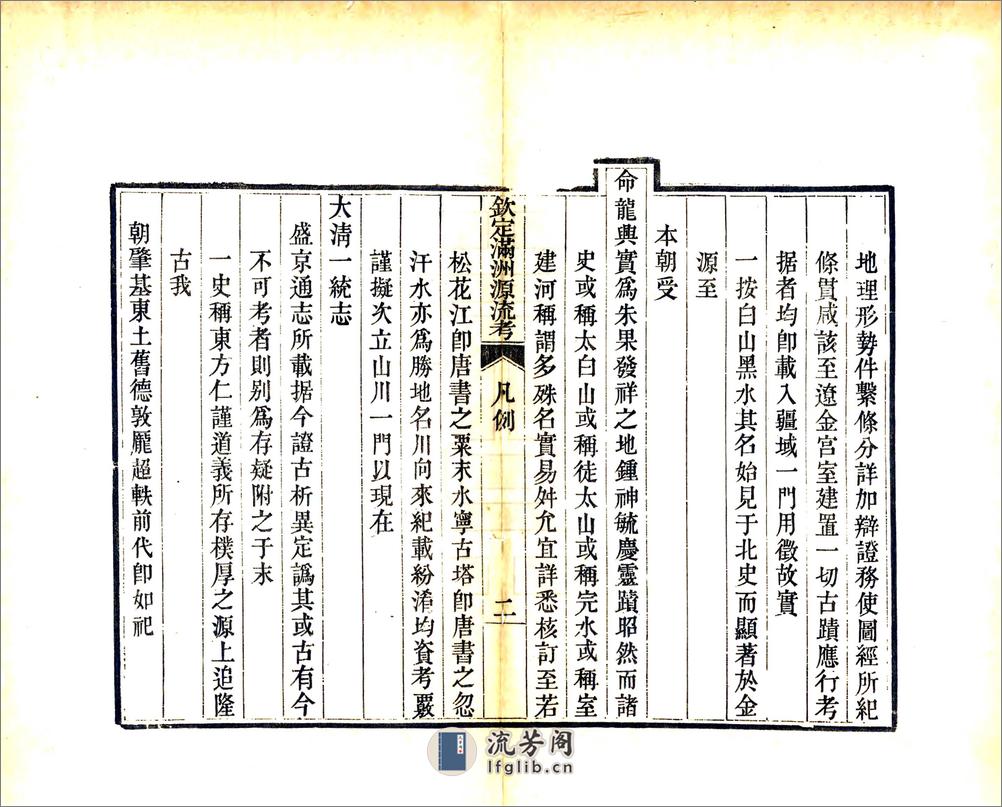 地理形勢件繫條分詳加辯證務使圖經所紀
條貫咸該至遼金宮室建置一切古蹟應行考
据者均卽載入疆域一門用徵故實
一按白山黑水其名始見于北史而顯著於金
源至
本朝受
命龍興實爲朱果發祥之地鍾神毓慶靈蹟昭然而諸
史或稱太白山或稱徒太山或稱完水或稱室
建河稱謂多殊名實易舛允宜詳悉核訂至若
欽定滿洲源流考 凡例 二
松花江卽唐書之粟末水寧古塔卽唐書之忽
汗水亦爲勝地名川向來紀載紛淆均資考覈
謹擬次立山川一門以現在
大淸一統志
盛京通志所載据今證古析異定譌其或古有今
不可考者則別爲存疑附之于末
一史稱東方仁謹道義所存樸厚之源上追隆
古我
朝肇基東土舊德敦龎超軼前代卽如祀
流芳阁
lfglib.cn